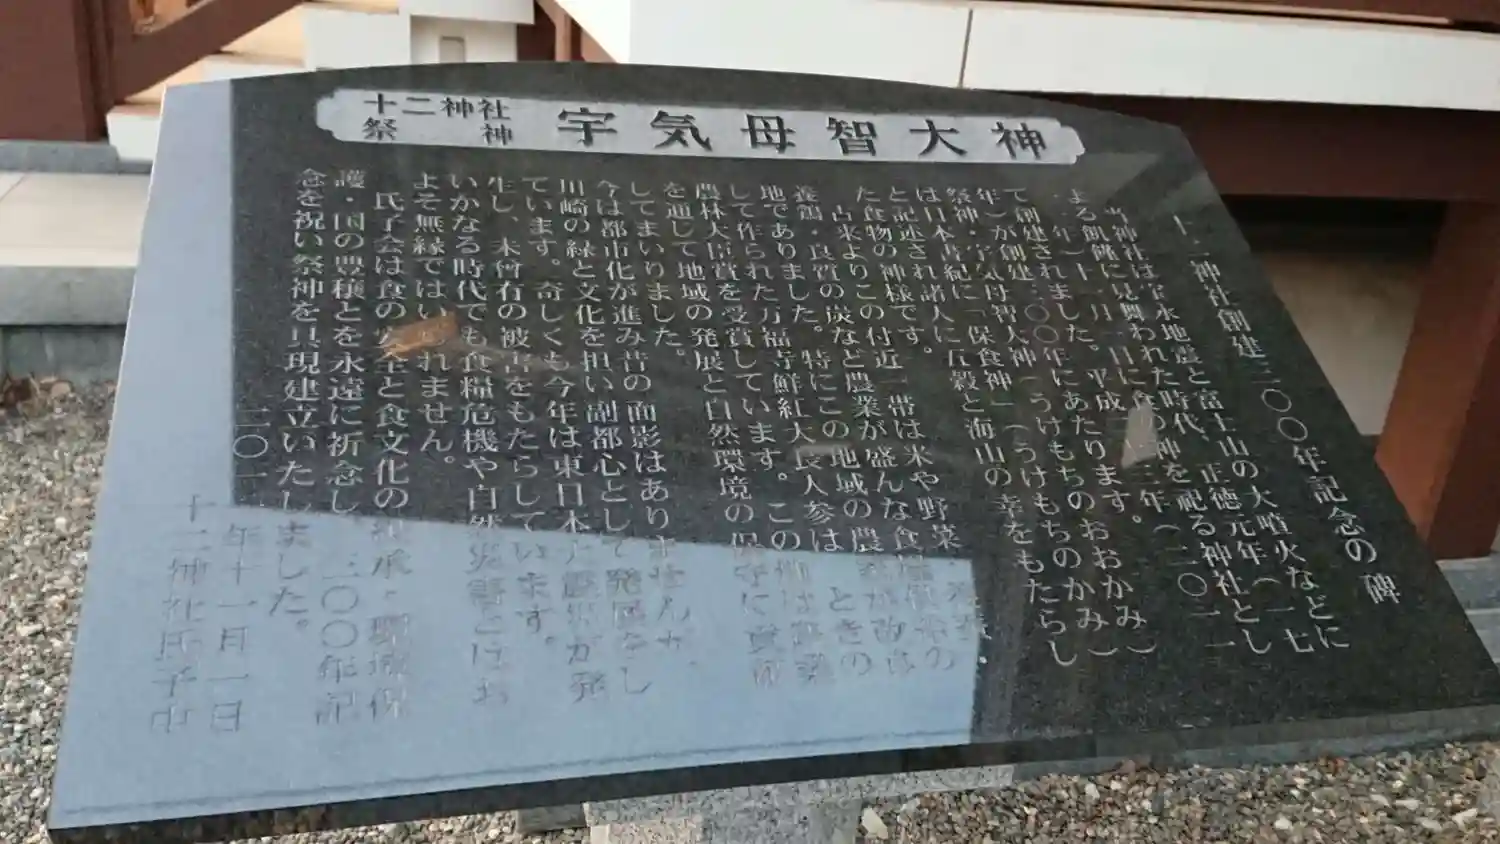 十二神社
祭神
宇気母智大神
十二神社創建三〇〇年記念の碑
当神社は宝永地震と富士山の大噴火などに
よる飢饉に見舞われた時代、正徳元年（一七
一一年）十一月一日に食の神を祀る神社とし
て創建されました。平成二十三年（二〇一一
年）が創建三〇〇年にあたります。
祭神・宇気母智大神（うけもちのおおかみ）
は日本書紀に「保食神」（うけもちのかみ）
と記述され諸人に五穀と海山の幸をもたらし
た食物の神様です。
古来よりこの付近一帯は米や野菜
養鶏・良質の炭など農業が盛んな食
地でありました。特にこの地域の農
して作られた万福寺鮮紅大長人参は
農林大臣賞を受賞しています。この
を通して地域の発展と自然環境の保
してまいりました。
今は都市化が進み昔の面影はありませんが、
川崎の緑と文化を担い副都心として発展をし
ています。奇しくも今年は東日本大震災が発
生し、未曾有の被害をもたらしています。
いかなる時代でも食糧危機や自然災害とはお
よそ無縁ではいられません。
氏子会は食の安全と食文化の継承・環境保
護・国の豊穣とを永遠に祈念し、三〇〇年記
念を祝い祭神を具現建立いたしました。
二〇一一年十一月一日
十二神社氏子中